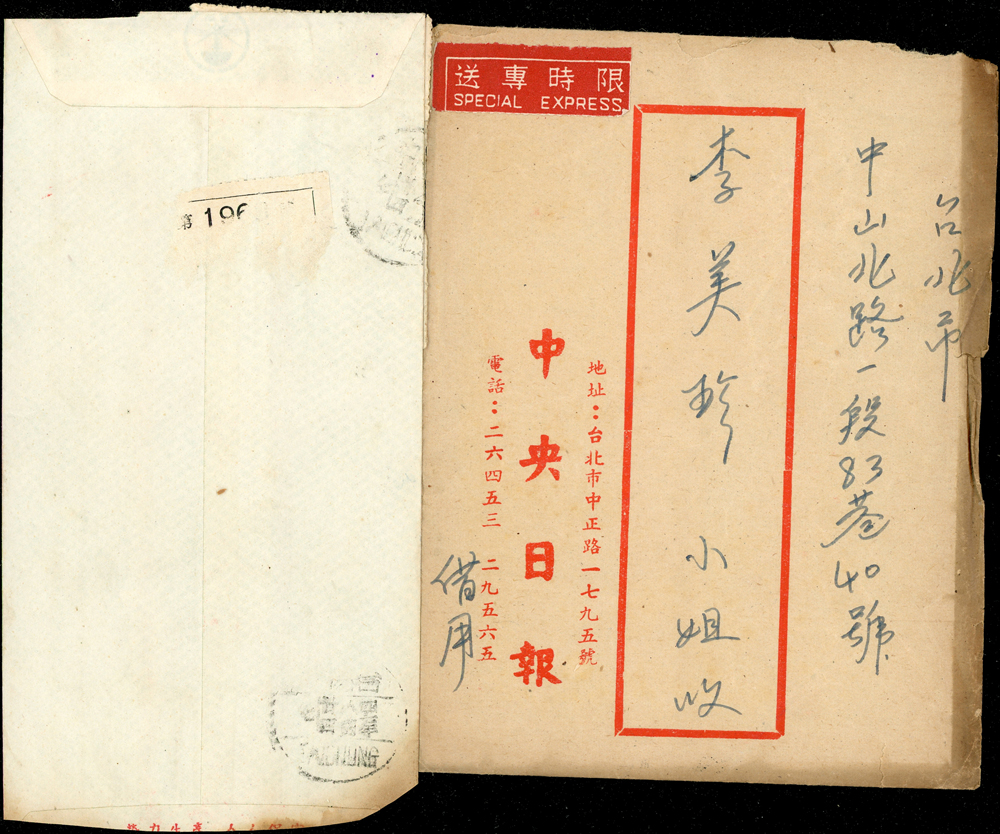 限時專送
SPECIAL EXPRESS
台北市
中山北路一段83巷40號
李美珍 小姐收
地址：台北市中正路一七九五號
中央日報
電話：二六四五三 二九五六五
借用
第 196
TAICHUNG